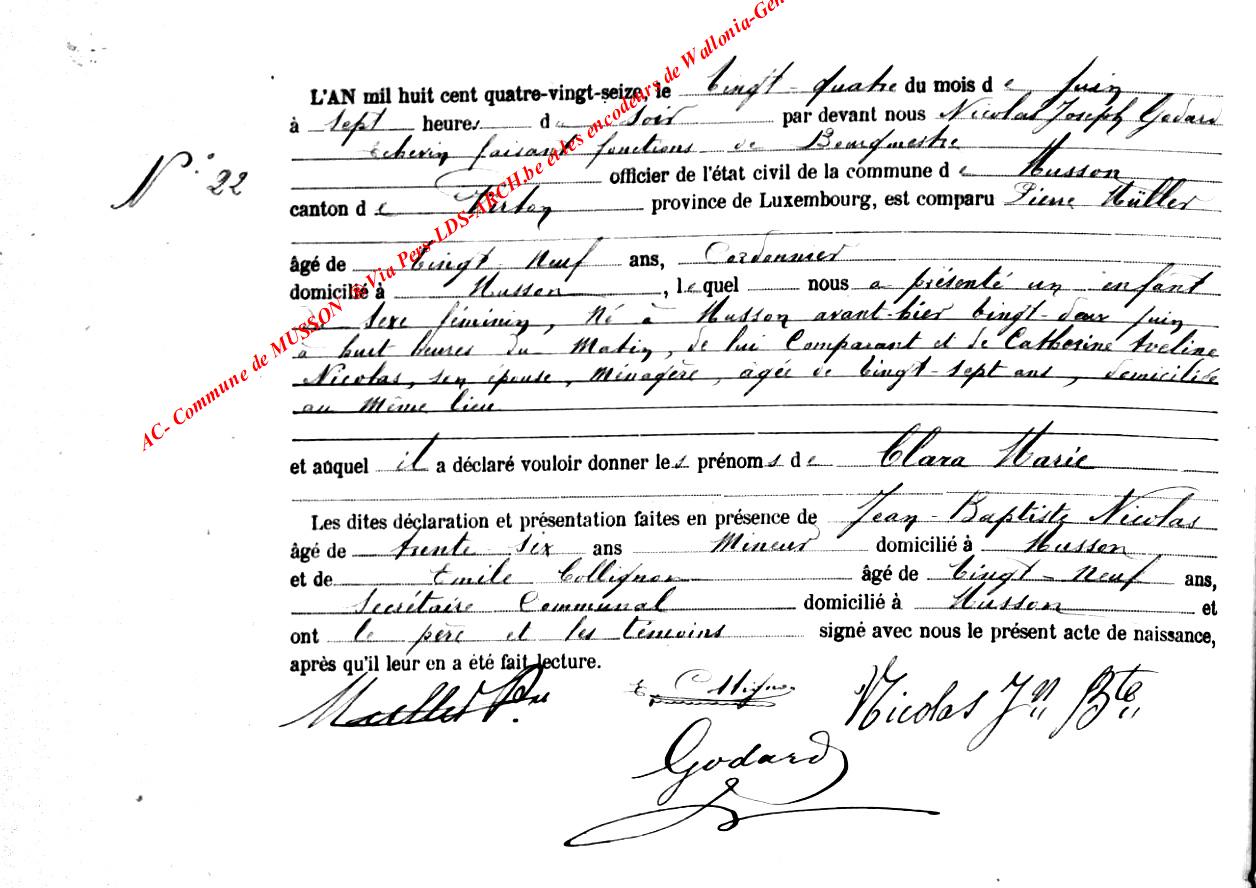 AC- Commune de MUSSON Via Pers-LDS-ARCH.be et les encodeurs de Wallonia-Gen
L'AN mil huit cent quatre-vingt-seize, le Vingt-quatre du mois de Juin
à sept heures du soir par devant nous Nicolas Joseph Godard
Echevin faisant fonctions de Bourgmestre
N° 22
officier de l'état civil de la commune de Musson
canton de Virton province de Luxembourg, est comparu Pierre Müller
âgé de Vingt Neuf ans, Cordonnier
domicilié à Musson, lequel nous a présenté un enfant
sexe féminin, Né à Musson avant-hier Vingt-deux Juin
à huit heures du Matin, de lui Comparant et de Catherine Aveline
Nicolas, son épouse, Ménagère, agée de Vingt-sept ans, domiciliée
au même lieu
et auquel il a déclaré vouloir donner les prénoms de Clara Marie
Les dites déclaration et présentation faites en présence de Jean-Baptiste Nicolas
âgé de trente six ans Mineur domicilié à Musson
et de Emile Collignon âgé de Vingt-Neuf ans,
Secrétaire Communal domicilié à Musson et
ont le père et les témoins signé avec nous le présent acte de naissance,
après qu'il leur en a été fait lecture.
Muller Pre E Collignon Nicolas Jn Bte
Godard